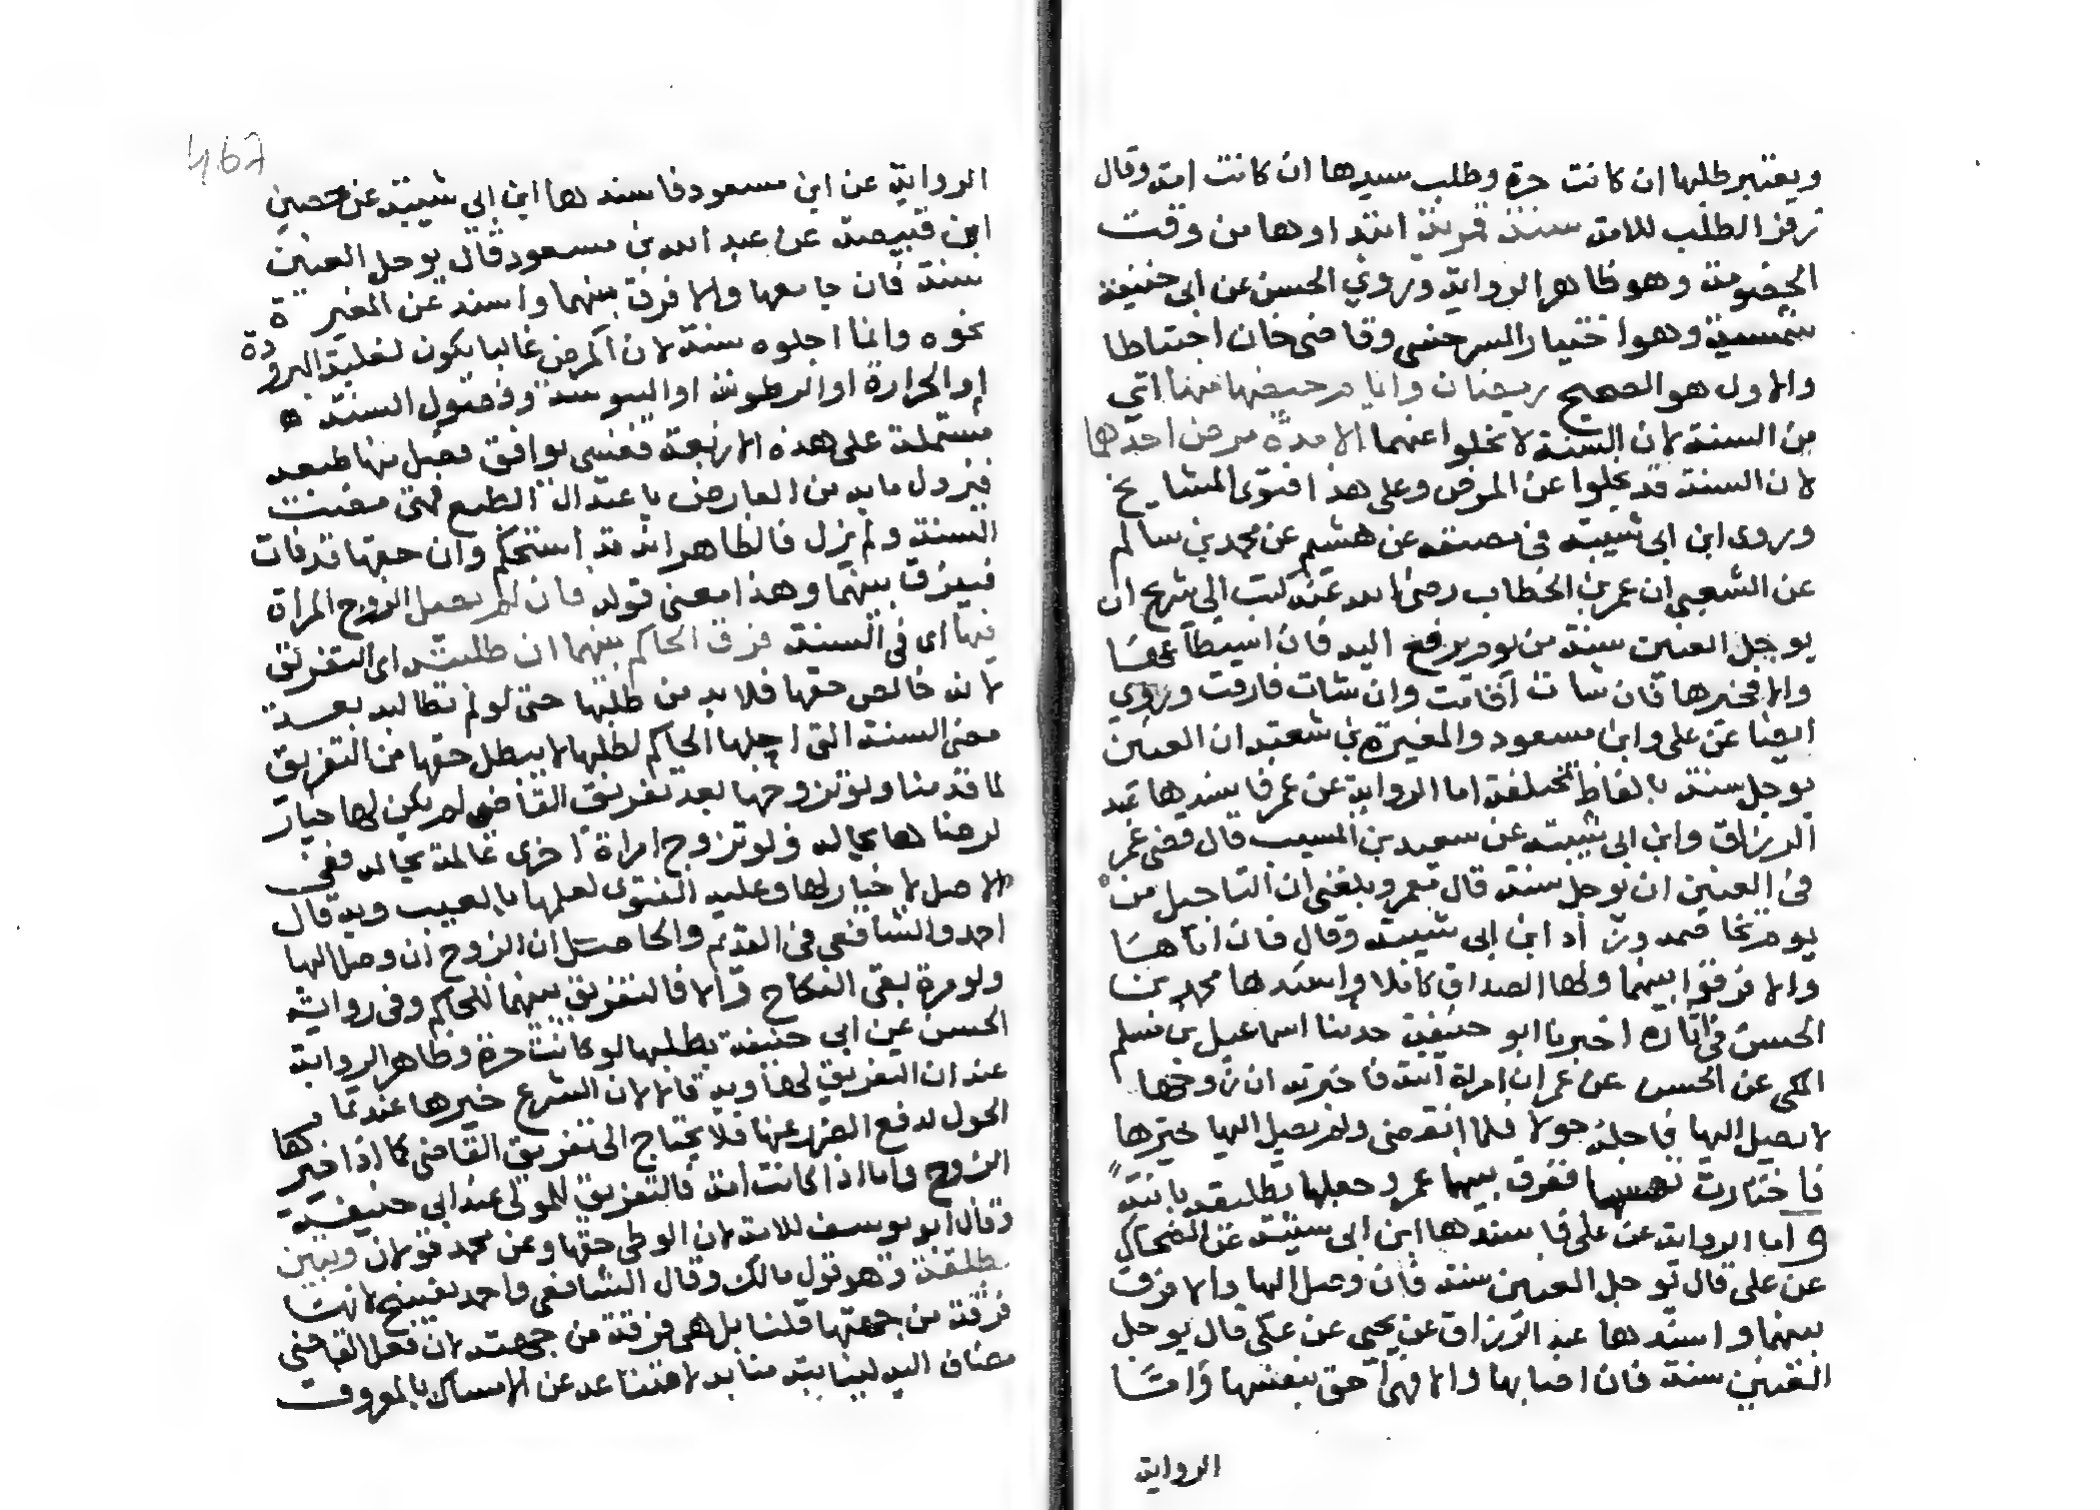 ويعتبر طلبها ان كانت حرة وطلب سيدها ان كانت امة وقال
زفر الطلب للامة سنة قمرية ابتداوها من وقت
الخصومة وهو ظاهر الرواية وروي الحسن عن ابى حنيفة
شمسية وهو اختيار السرخسى وقاضى خان احتياطا
والاول هو الصحيح رمضان وايام حيضها منها اى
من السنة لان السنة لا تخلوا عنهما لا مدة مرض احدهما
لان السنة قد تخلوا عن المرض وعلى هذا فتوى المشايخ
وروى ابن ابى شيبة فى مصنفه عن هشيم عن محمد بن سالم
عن الشعبي ان عمر بن الخطاب رضى الله عنه كتب الى شريح ان
يوجل العنين سنة من يوم يرفع اليه فان استطاعها
والا فخيرها فان شات اقامت وان شات فارقت وروي
ايضا عن على وابن مسعود والمغيرة بن شعبة ان العنين
يوجل سنة بالفاظ مختلفة اما الرواية عن عمر فاسندها عبد
الرزاق وابن ابى شيبة عن سعيد بن المسيب قال قضى عمر
فى العنين ان يوجل سنة قال معمر وبلغنى ان التاجيل من
يوم ترافعا فيه وزاد ابن ابى شيبة وقال فان اتاها
والا فرقوا بينهما ولها الصداق كاملا واسندها محمد بن
الحسن فى آثاره اخبرنا ابو حنيفة حدثنا اسماعيل بن مسلم
المكى عن الحسن عن عمر ان امراة اتته فاخبرته ان زوجها
لا يصل اليها فاجله حولا فلما انقضى ولم يصل اليها خيرها
فاختارت نفسها ففرق بينهما عمر وجعلها تطليقة باينة
واما الرواية عن على فاسندها ابن ابى شيبة عن الضحاك
عن على قال يوجل العنين سنة فان وصل اليها والا فرق
بينهما واسندها عبد الرزاق عن يحيى عن على قال يوجل
العنين سنة فان اصابها والا فهى احق بنفسها واما
الرواية
467
الرواية عن ابن مسعود فاسندها ابن ابي شيبة عن حصين
ابن قبيصة عن عبد الله بن مسعود قال يوجل العنين
سنة فان جامعها والا فرق بينهما واسند عن المغيرة
نحوه وانما اجلوه سنة لان المرض غالبا يكون لغلبة البرودة
او الحرارة او الرطوبة او اليبوسة وفصول السنة
مشتملة على هذه الاربعة فعسى يوافق فصل منها طبعه
فيزول ما به من العارض باعتدال الطبع فمتى مضت
السنة ولم يزل فالظاهر انه قد استحكم وان حقها قد فات
فيفرق بينهما وهذا معنى قوله فان لم يصل الزوج المراة
فيها اى فى السنة فرق الحاكم بينهما ان طلبته اى التفريق
لانه خالص حقها فلا بد من طلبها حتى لو لم تطالبه بعد
مضى السنة التى اجلها الحاكم لطلبها لا يبطل حقها من التفريق
لما قدمنا ولو تزوجها بعد تفريق القاضى لم يكن لها خيار
لرضاها بحاله ولو تزوج امراة اخرى عالمة بحاله ففى
الاصل لا خيار لها وعليه الفتوى لعلمها بالعيب وبه قال
احمد والشافعى فى القديم والحاصل ان الزوج ان وصل اليها
ولو مرة بقى النكاح والا فالتفريق بينهما للحاكم وفى رواية
الحسن عن ابى حنيفة بطلبها لو كانت حرة وظاهر الرواية
عنه ان التفريق لها وبه قالا لان الشرع خيرها عند تمام
الحول لدفع الضرر عنها فلا يحتاج الى تفريق القاضى كما اذا خيرها
الزوج واما اذا كانت امة فالتفريق للمولى عند ابى حنيفة
وقال ابو يوسف للامة لان الوطى حقها وعن محمد قولان وتبين
بطلقة وهو قول مالك وقال الشافعى واحمد بفسخ لانها
فرقة من جهتها قلنا بل هى فرقة من جهته لان فعل القاضى
مضاف اليه لنيابته منابه لامتناعه عن الامساك بالمعروف